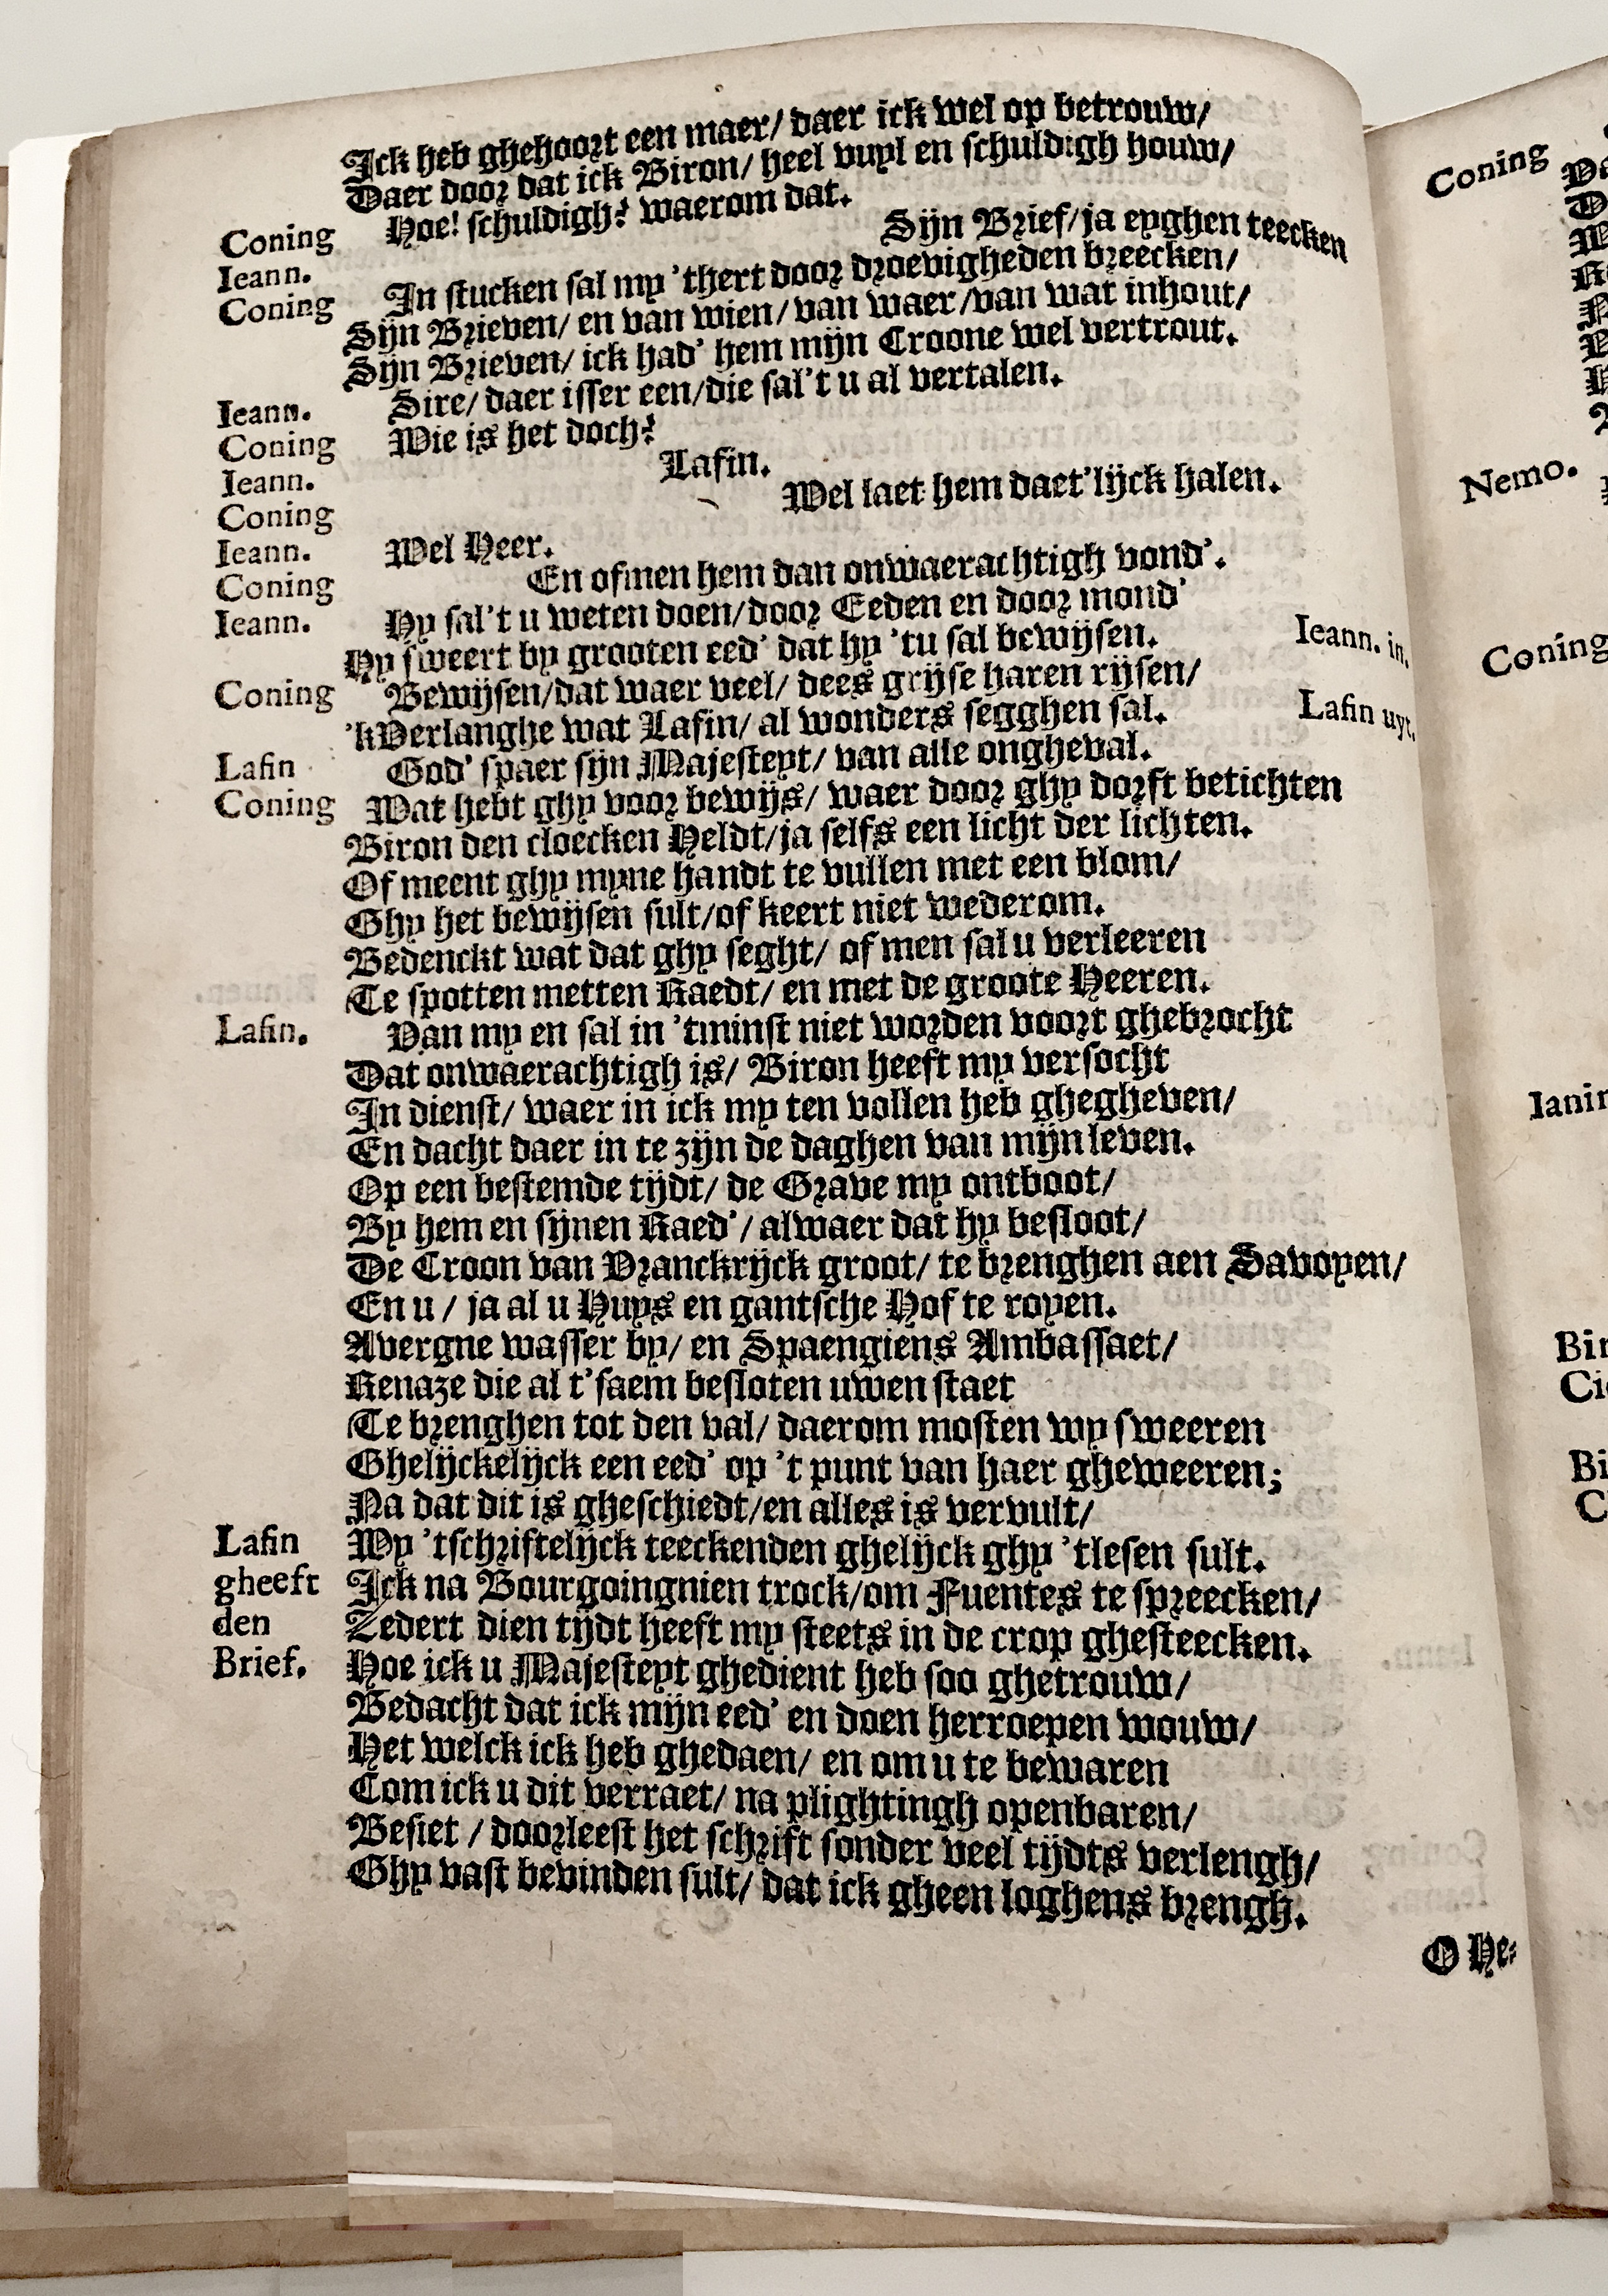 Ick heb ghehoort een maer/ daer ick wel op betrouw/
Daer door dat ick Biron/ heel vuyl en schuldigh houw/
Coning Hoe! schuldigh? waerom dat.
Ieann. Sijn Brief/ja eyghen teecken
Coning In stucken sal my 'thert door droevigheden breecken/
Sijn Brieven/ en van wien/ van waer/van wat inhout/
Sijn Brieven/ ick had' hem mijn Croone wel vertrout.
Ieann. Sire/ daer isser een/die sal't u al vertalen.
Coning Wie is het doch?
Ieann. Lafin.
Coning Wel laet hem daet'lijck halen.
Ieann. Wel Heer.
Coning En ofmen hem dan onwaerachtigh vond'.
Ieann. Hy sal't u weten doen/door Eeden en door mond'
Hy sweert by grooten eed' dat hy 'tu sal bewijsen. Ieann. in.
Coning Bewijsen/dat waer veel/ dees grijse haren rijsen/
'kVerlanghe wat Lafin/ al wonders segghen sal. Lafin uyt.
Lafin God' spaer sijn Majesteyt/ van alle ongheval.
Coning Wat hebt ghy voor bewijs/ waer door ghy dorft betichten
Biron den cloecken Heldt/ja selfs een licht der lichten.
Of meent ghy myne handt te vullen met een blom/
Ghy het bewijsen sult/of keert niet wederom.
Bedenckt wat dat ghy seght/ of men sal u verleeren
Te spotten metten Raedt/ en met de groote Heeren.
Lafin. Van my en sal in 'tminst niet worden voort ghebrocht
Dat onwaerachtigh is/ Biron heeft my versocht
In dienst/ waer in ick my ten vollen heb ghegheven/
En dacht daer in te zijn de daghen van mijn leven.
Op een bestemde tijdt/ de Grave my ontboot/
By hem en sijnen Raed'/ alwaer dat hy besloot/
De Croon van Vranckrijck groot/ te brenghen aen Savoyen/
En u/ ja al u Huys en gantsche Hof te royen.
Avergne wasser by/ en Spaengiens Ambassaet/
Renaze die al t'saem besloten uwen staet
Te brenghen tot den val/ daerom mosten wy sweeren
Ghelijckelijck een eed' op 't punt van haer gheweeren;
Na dat dit is gheschiedt/en alles is vervult/
Lafin Wy 'tschriftelijck teeckenden ghelijck ghy 'tlesen sult.
gheeft Ick na Bourgoingnien trock/om Fuentes te spreecken/
den Zedert dien tijdt heeft my steets in de crop ghesteecken.
Brief. Hoe ick u Majesteyt ghedient heb soo ghetrouw/
Bedacht dat ick mijn eed' en doen herroepen wouw/
Het welck ick heb ghedaen/ en om u te bewaren
Com ick u dit verraet/ na plightingh openbaren/
Besiet/ doorleest het schrift sonder veel tijdts verlengh/
Ghy vast bevinden sult/ dat ick gheen loghens brengh.
O He-
Coning
Nemo.
Coning